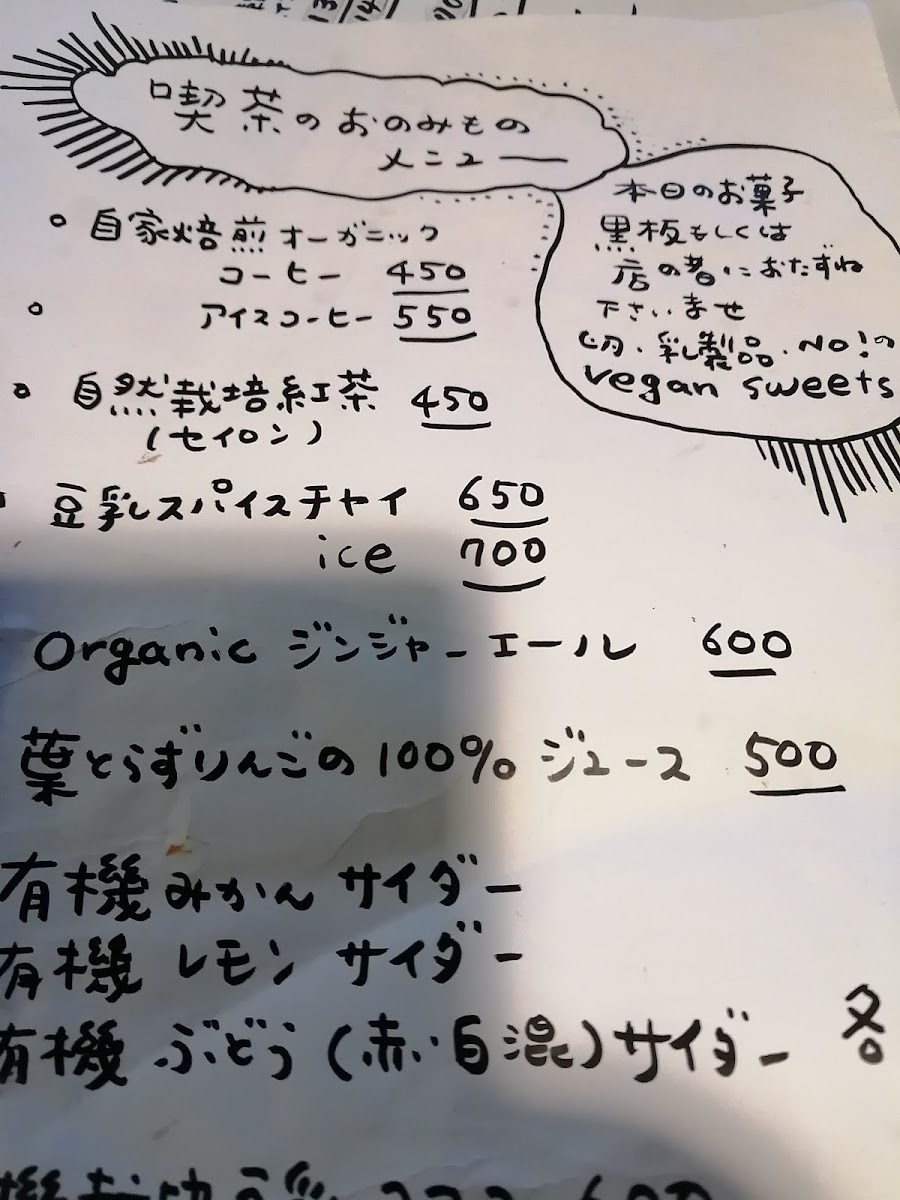 喫茶のおのみもの
メニュー
本日のお菓子
黒板もしくは
店の者におたずね
下さいませ
卵、乳製品、NO!の
vegan sweets
自家焙煎オーガニック
コーヒー 450
アイスコーヒー 550
自然栽培紅茶 450
(セイロン)
豆乳スパイスチャイ 650
ice 700
Organic ジンジャーエール 600
葉とらずりんごの100%ジュース 500
有機みかんサイダー
有機レモンサイダー
有機ぶどう(赤、白混)サイダー 各